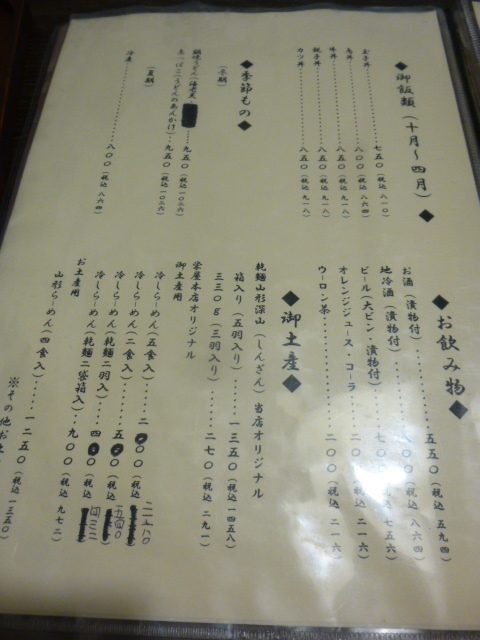 ◆御飯類（十月〜四月）◆
玉子丼・・・・・・七五〇（税込 八一〇）
鳥丼・・・・・・八〇〇（税込 八六四）
味丼・・・・・・八五〇（税込 九一八）
親子丼・・・・・・八五〇（税込 九一八）
カツ丼・・・・・・八五〇（税込 九一八）
◆季節もの◆
（冬期）
鍋焼うどん（海老天）・・・九五〇（税込 一〇二六）
あんかけ）・・九五〇（税込 一〇二六）
（夏期）
冷麦・・・・・・八〇〇（税込 八六四）
◆お飲み物◆
お酒（漬物付）・・・・・・五五〇（税込 五九四）
地冷酒（漬物付）・・・・・・八〇〇（税込 八六四）
ビール（大ビン・漬物付）・・七〇〇（税込 七五六）
オレンジジュース・コーラ・・二〇〇（税込 二一六）
ウーロン茶・・・・・・二〇〇（税込 二一六）
◆御土産◆
乾麺山形深山（しんざん）当店オリジナル
箱入り（五羽入り）・・・一三五〇（税込 一四五八）
三三〇ｇ（三羽入り）・・・二七〇（税込 二九一）
栄屋本店オリジナル
御土産用
冷しらーめん（五食入）・・二〇〇〇（税込 二一六〇
冷しらーめん（二食入）・・・五〇〇（税込 五四〇
冷しらーめん（乾麺二羽入）・・・四〇〇（税込 四三二
冷しらーめん（乾麺二袋箱入）・九〇〇（税込 九七二）
お土産用
山形らーめん（四食入）・・・一二五〇（税込 一三五〇）
※その他お土